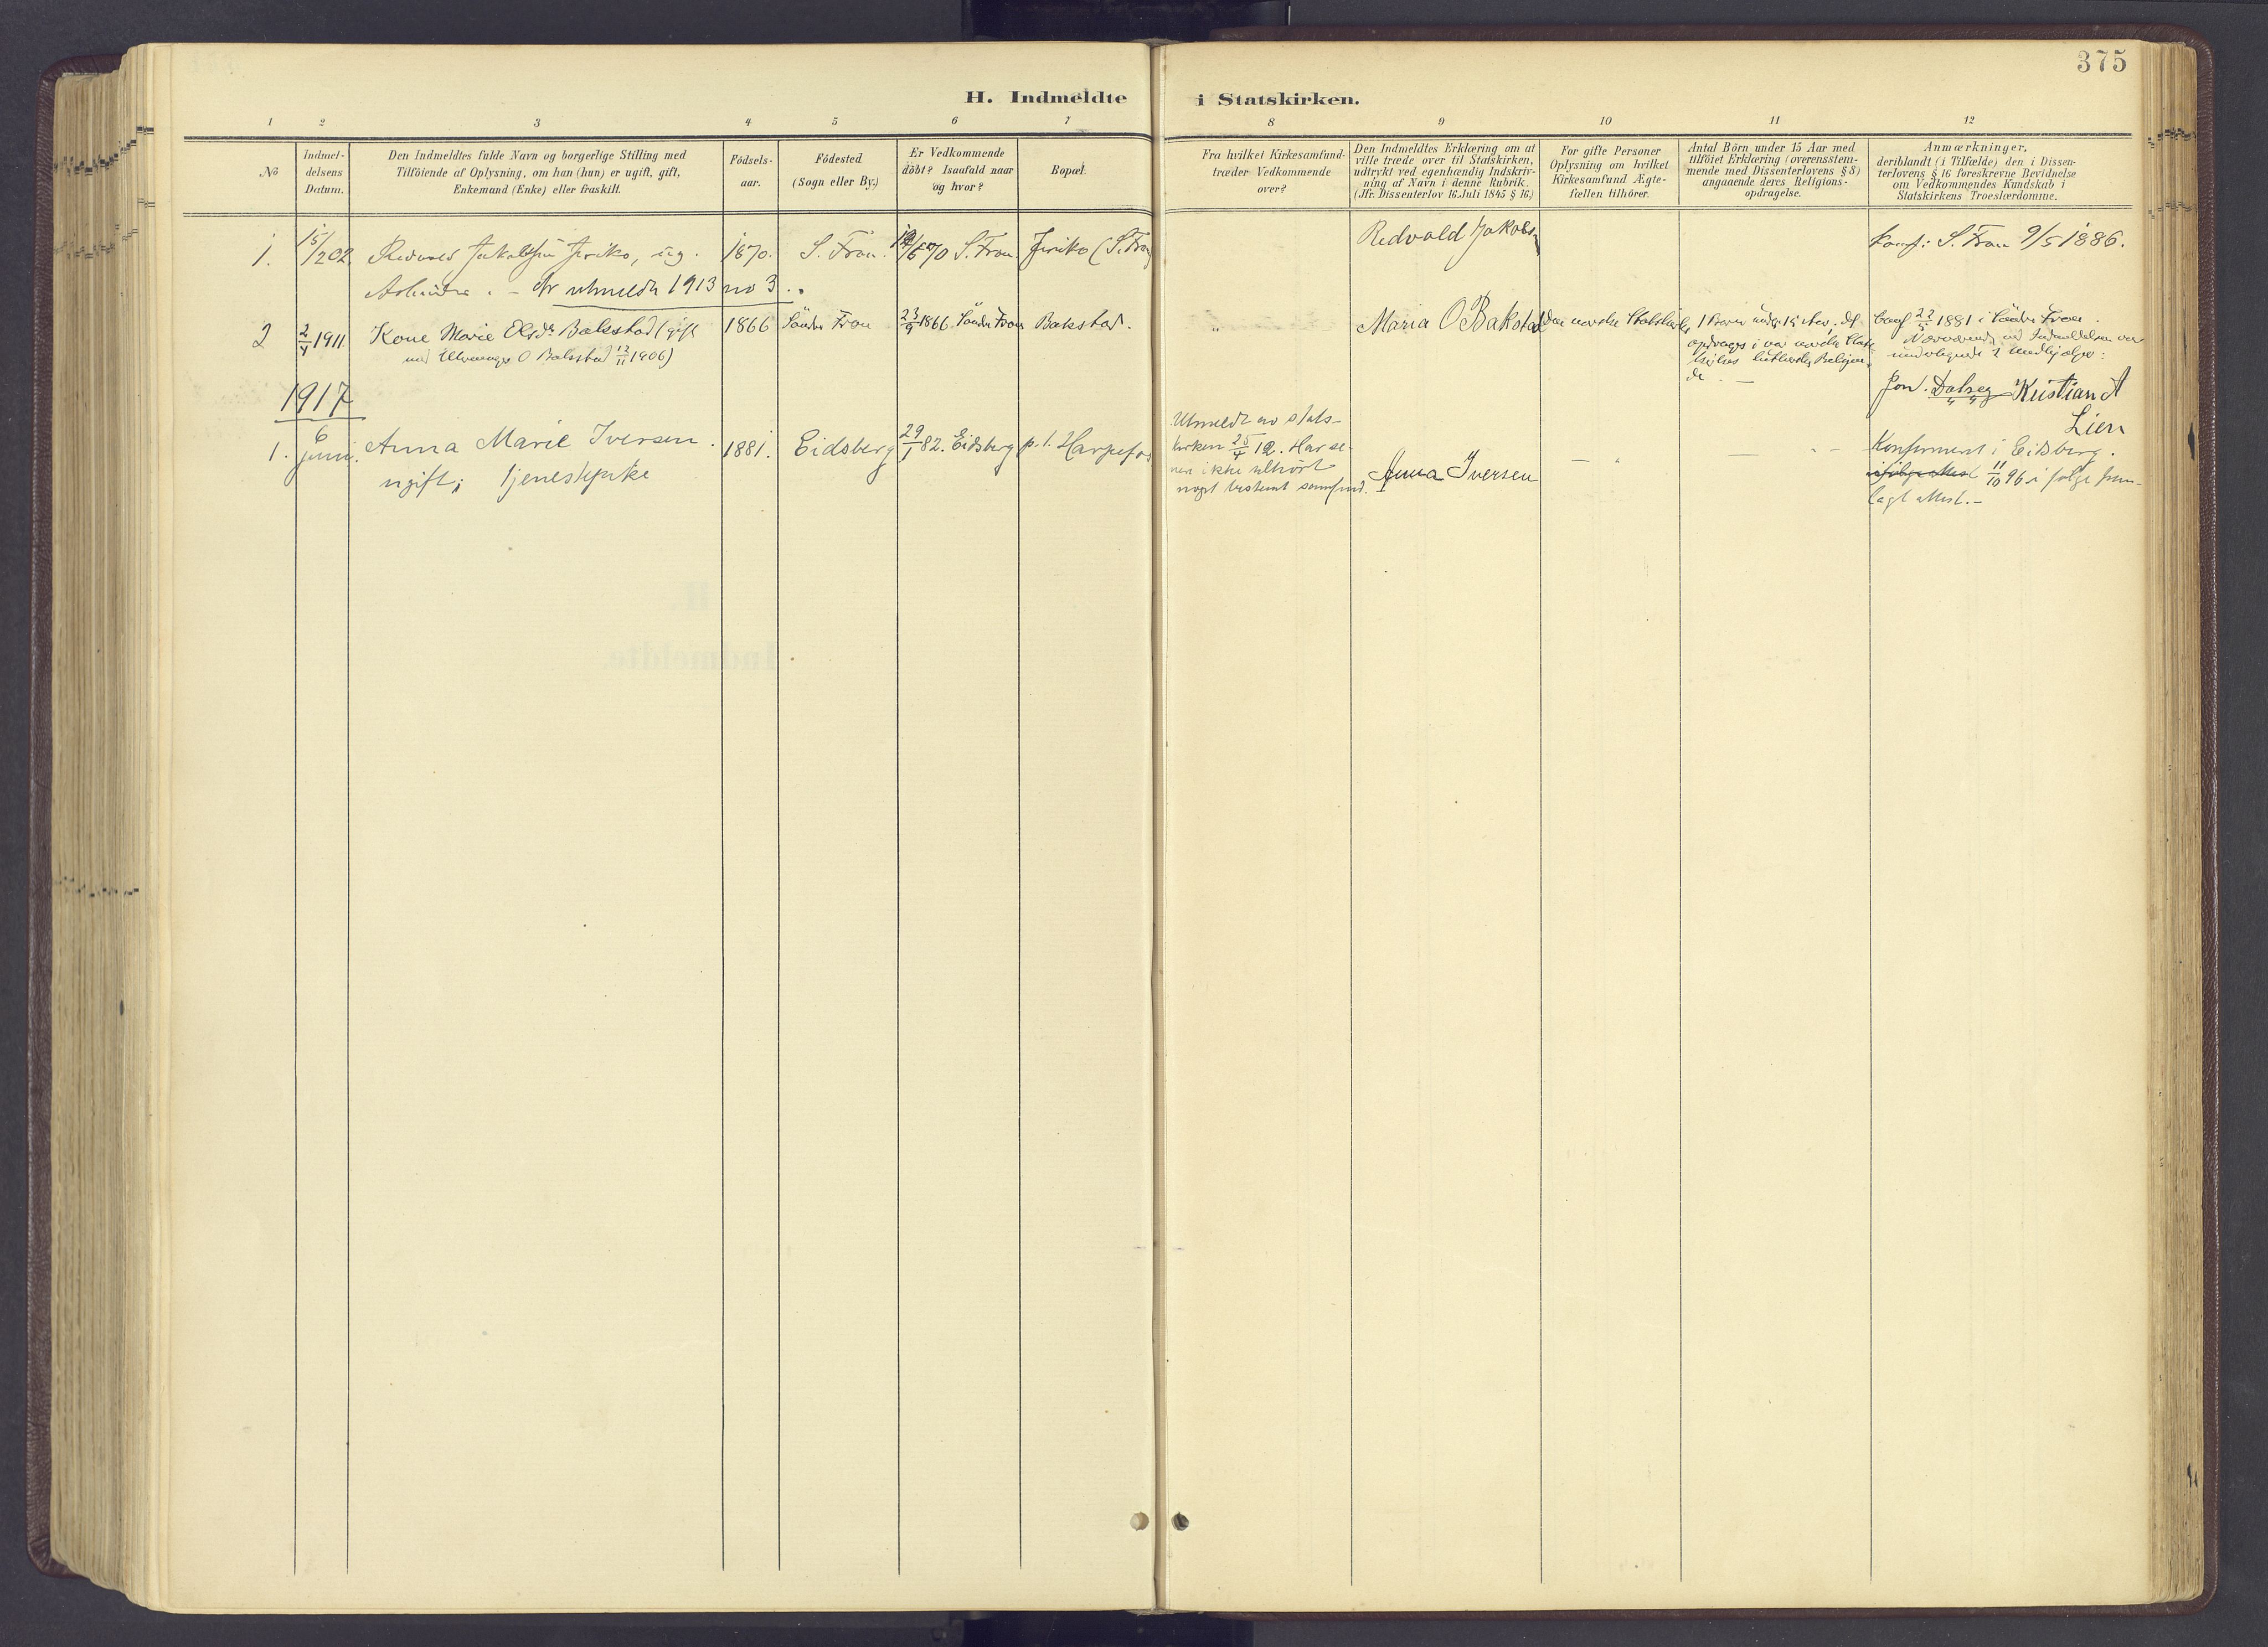 375
H. Indmeldte i Statskirken.
1 2 3 4 5 6 7 8 9 10 11 12
No
Indmeldelsens Datum.
Den Indmeldtes fulde Navn og borgerlige Stilling med
Tilföiende af Oplysning, om han (hun) er ugift, gift,
Enkemand (Enke) eller fraskilt.
Födsels-
aar.
Födested
(Sogn eller By.)
Er Vedkommende
döbt? Isaafald naar
og hvor?
Bopæl.
Fra hvilket Kirkesamfund
træder Vedkommende
over?
Den Indmeldtes Erklæring om at
ville træde over til Statskirken,
udtrykt ved egenhændig Indskriv-
ning af Navn i denne Rubrik.
(Jfr. Dissenterlov 16. Juli 1845 § 16.)
For gifte Personer
Oplysning om hvilket
Kirkesamfund Ægte-
fællen tilhörer.
Antal Börn under 15 Aar med
tilföiet Erklæring (overensstem-
mende med Dissenterlovens § 8)
angaaende deres Religions-
opdragelse.
Anmærkninger,
deriblandt (i Tilfælde) den i Dissen-
terlovens § 16 foreskrevne Bevidnelse
om Vedkommendes Kundskab i
Statskirkens Troeslærdomme.
1. 15/2 02. Redvald Jakobsen Jeriko, ug. 1870. S. Fron. 6/70 S. Fron. Jeriko (S. Fron)
Redvald Jakobsen
Konf: S. Fron 9/5 1886.
utmeldt 1913 no 3.
2 2/4 1911 Kone Marie Olsdr Bakstad (gift 1866 Söndre Fron 23/9 1866. Söndre Fron Bakstad.
med O Bakstad 12/11 1906)
"
Maria O Bakstad
Den norske Statskirke
1 Barn under 15 Aar, det
opdrages i den norske Stats-
kirkes lutherske Religion.
Conf 22/5 1881 i Söndre Fron.
Nærværende ved Indmeldelsen var
undertegnede 2 Medhjælpe:
Jon. Dalseg Kristian A
Lien
1917
1. 6 juni. Anna Marie Iversen. 1881. Eidsberg 29/1 82. Eidsberg p. t. Harpefos
ugift; tjenestepike
Utmeldt av stats-
kirken 25/4 12. Har se-
nere ikke tilhört
noget bestemt samfund.
Anna Iversen
Konfirmert i Eidsberg.
11/10 96 i fölge frem-
lagt attest.